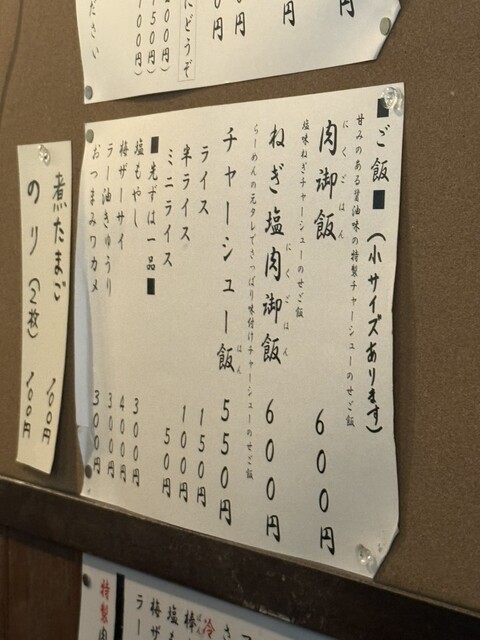 ■ご飯■(小サイズあります)
甘みのある醤油味の特製チャーシューのせご飯
にくごはん
肉御飯 600円
塩味ねぎチャーシューのせご飯
にくごはん
ねぎ塩肉御飯 600円
らーめんの元タレでさっぱり味付けチャーシューのせご飯
はん
チャーシュー飯 550円
ライス 150円
半ライス 100円
ミニライス 50円
■先ずは一品■
塩もやし 300円
梅ザーサイ 400円
ラー油きゅうり 300円
おつまみワカメ 300円
煮たまご 100円
のり(2枚) 100円
にどうぞ
150円)
100円)
ださい
円
円
特製